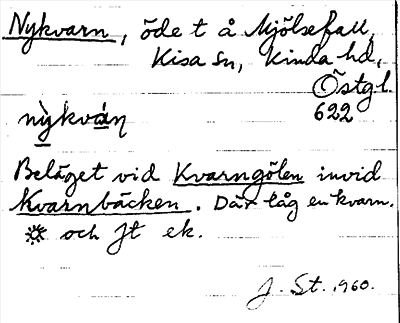 Nykvarn, öde t å Mjölsefall,
Kisa sn, Kinda hd,
Östgl.
622
nỳkván
Beläget vid Kvarngölen invid
Kvarnbäcken. Där låg en kvarn.
och Jt ek.
J. St. 1960.